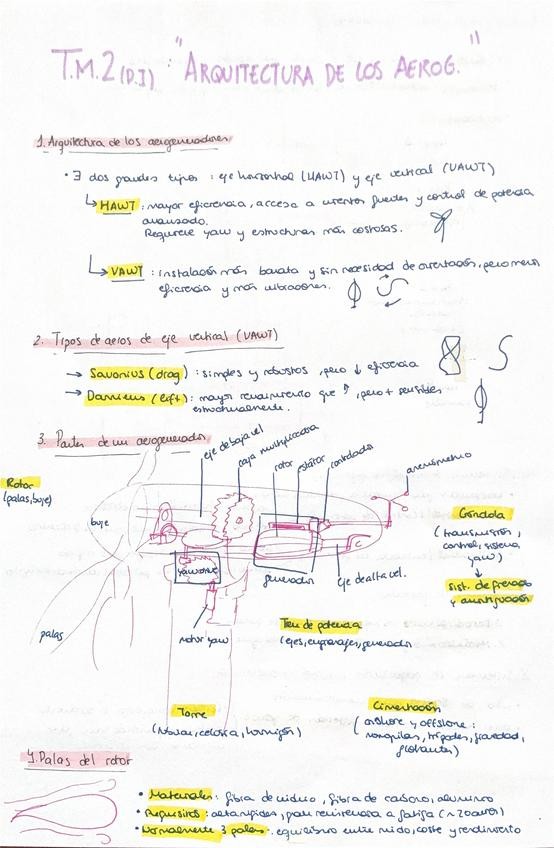 T.M.2 (D.I) : "ARQUITECTURA DE LOS AEROG."
1. Arquitectura de los aerogeneradores
• ∃ dos grandes tipos : eje horizontal (HAWT) y eje vertical (VAWT)
↳ HAWT : mayor eficiencia, acceso a vientos fuertes y control de potencia
avanzado.
Requiere yaw y estructuras más costosas.
↳ VAWT : instalación más barata y sin necesidad de orientación, pero menor
eficiencia y más vibraciones.
2. Tipos de aeros de eje vertical (VAWT)
→ Savonius (drag) : simples y robustos, pero ↓ eficiencia
→ Darrieus (lift) : mayor rendimiento que ↑, pero + sensibles
estructuralmente.
3. Partes de un aerogenerador
eje de baja vel.
caja multiplicadora
rotor
estátor
controlador
anemómetro
Rotor
(palas, buje)
buje
Góndola
(transmisión,
control, sistema
yaw)
↓
sist. de frenado
y amortiguación
yaw drive
generador
eje de alta vel.
C
palas
motor yaw
Tren de potencia
(ejes, engranajes, generador)
Torre
(tubular, celosía, hormigón)
Cimentación
(onshore y offshore :
monopilas, trípodes, gravedad,
flotantes)
4. Palas del rotor
• Materiales : fibra de vidrio, fibra de carbono, aluminio
• Requisitos : resistencia a fatiga (~20 años)
• Normalmente 3 palas : equilibrio entre ruido, coste y rendimiento